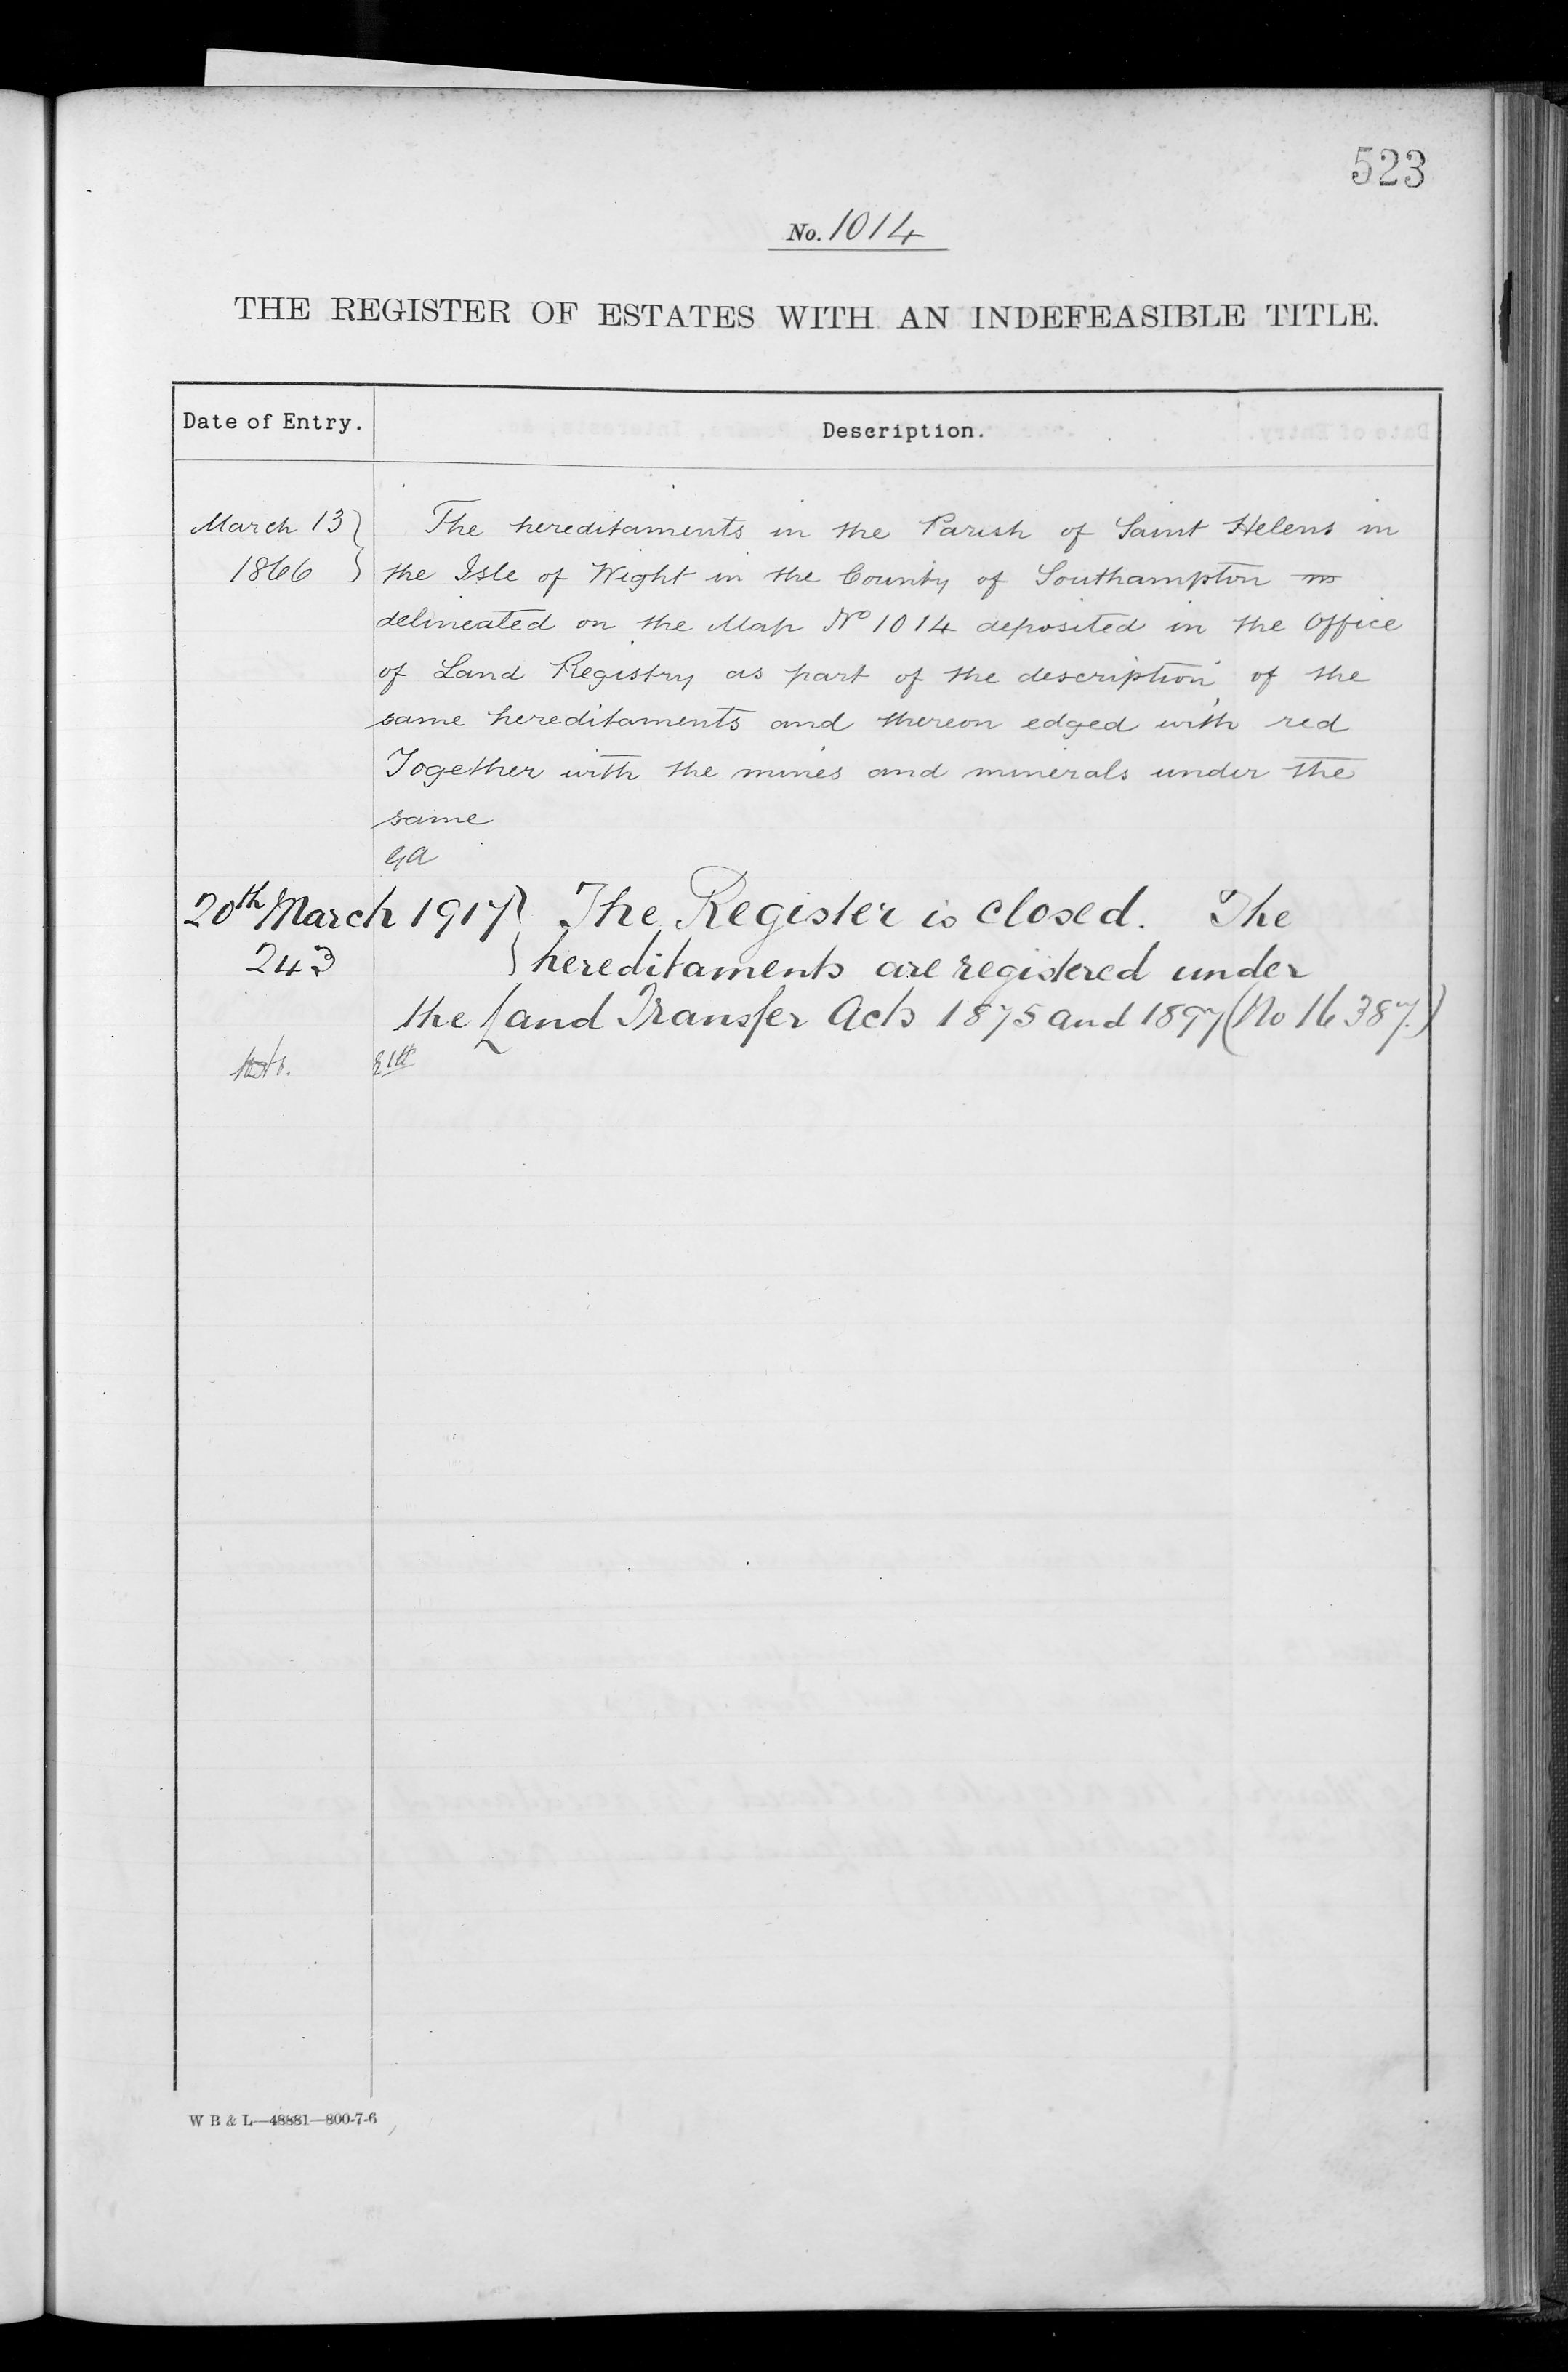 523
No. 1014
THE REGISTER OF ESTATES WITH AN INDEFEASIBLE TITLE.
Date of Entry.
Description.
March 13
1866
The hereditaments in the Parish of Saint Helens in
the Isle of Wight in the County of Southampton
delineated on the Map No 1014 deposited in the Office
of Land Registry as part of the description of the
same hereditaments and thereon edged with red
Together with the mines and minerals under the
same
GA
20th March 1917 The Register is closed. The
243 hereditaments are registered under
the Land Transfer Acts 1875 and 1897 (No 16387.)
W B & L—48881—800-7-6